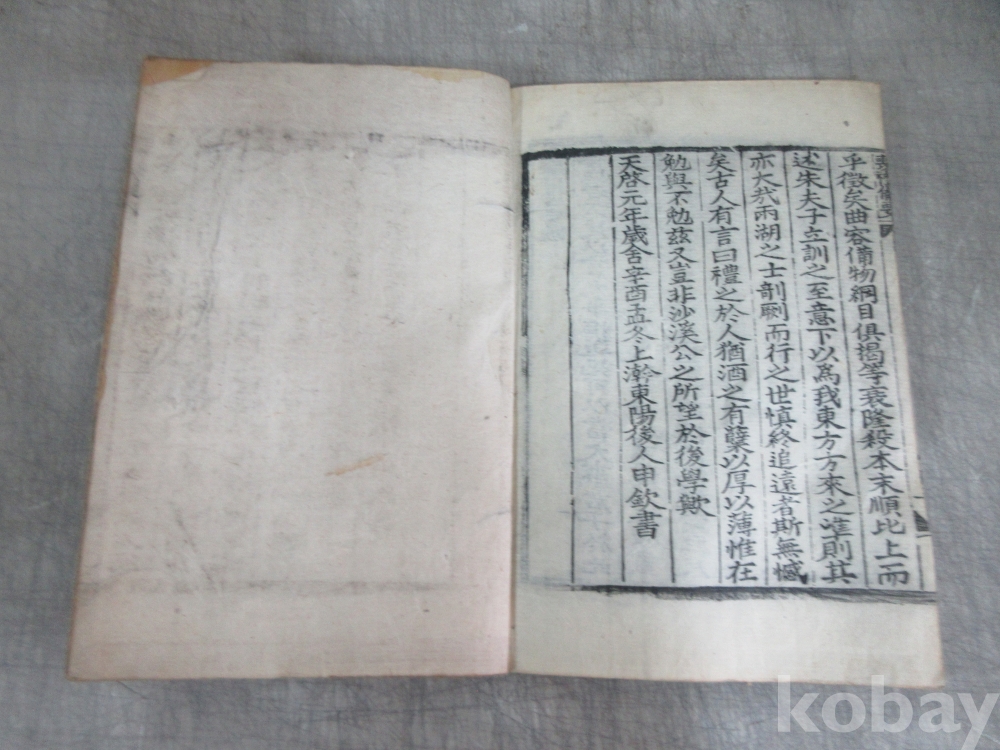 乎徵矣曲容備物綱目俱揭等衰隆殺本末順比上而
述朱夫子立訓之至意下以爲我東方方來之準則其
亦大哉兩湖之士剞劂而行之世愼終追遠者斯無憾
矣古人有言曰禮之於人猶酒之有糵以厚以薄惟在
勉與不勉茲又豈非沙溪公之所望於後學歟
天啓元年歲舍辛酉孟冬上澣東陽後人申欽書
kobay